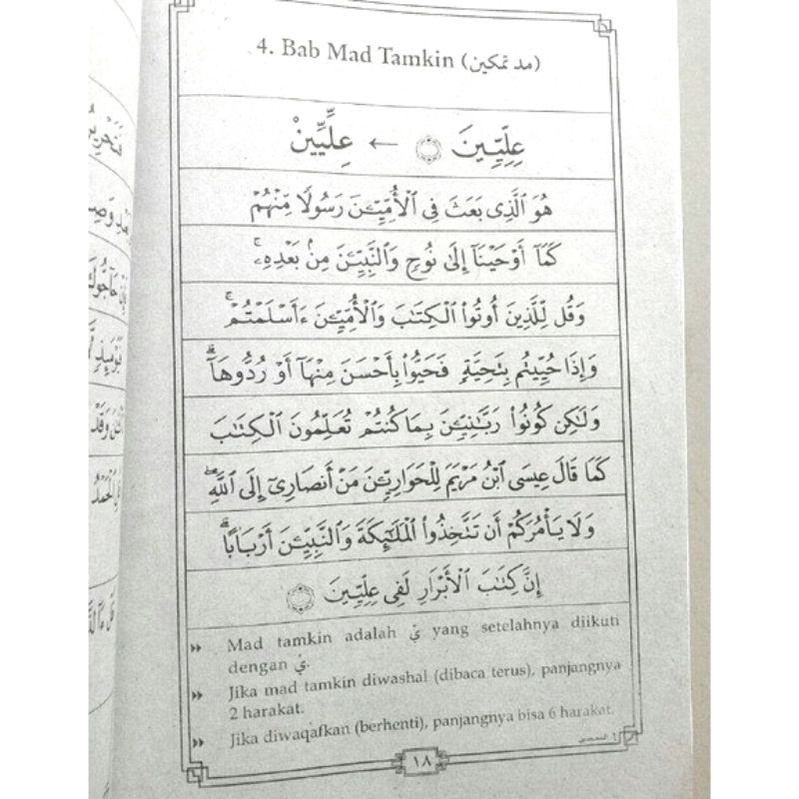 4. Bab Mad Tamkin (مد تمكين)
عِلِّيِّينَ ۝ ← عِلِّيِّينْ
هُوَ ٱلَّذِى بَعَثَ فِى ٱلْأُمِّيِّـۧنَ رَسُولًا مِّنْهُمْ
كَمَآ أَوْحَيْنَآ إِلَىٰ نُوحٍ وَٱلنَّبِيِّـۧنَ مِنۢ بَعْدِهِۦ ۚ
وَقُل لِّلَّذِينَ أُوتُوا۟ ٱلْكِتَـٰبَ وَٱلْأُمِّيِّـۧنَ ءَأَسْلَمْتُمْ ۚ
وَإِذَا حُيِّيتُم بِتَحِيَّةٍ فَحَيُّوا۟ بِأَحْسَنَ مِنْهَآ أَوْ رُدُّوهَآ ۗ
وَلَـٰكِن كُونُوا۟ رَبَّـٰنِيِّـۧنَ بِمَا كُنتُمْ تُعَلِّمُونَ ٱلْكِتَـٰبَ
كَمَا قَالَ عِيسَى ٱبْنُ مَرْيَمَ لِلْحَوَارِيِّـۧنَ مَنْ أَنصَارِىٓ إِلَى ٱللَّهِ ۖ
وَلَا يَأْمُرَكُمْ أَن تَتَّخِذُوا۟ ٱلْمَلَـٰٓئِكَةَ وَٱلنَّبِيِّـۧنَ أَرْبَابًا ۗ
إِنَّ كِتَـٰبَ ٱلْأَبْرَارِ لَفِى عِلِّيِّينَ ۝
Mad tamkin adalah يِّ yang setelahnya diikuti
dengan يْ.
Jika mad tamkin diwashal (dibaca terus), panjangnya
2 harakat.
Jika diwaqafkan (berhenti), panjangnya bisa 6 harakat.
١٨